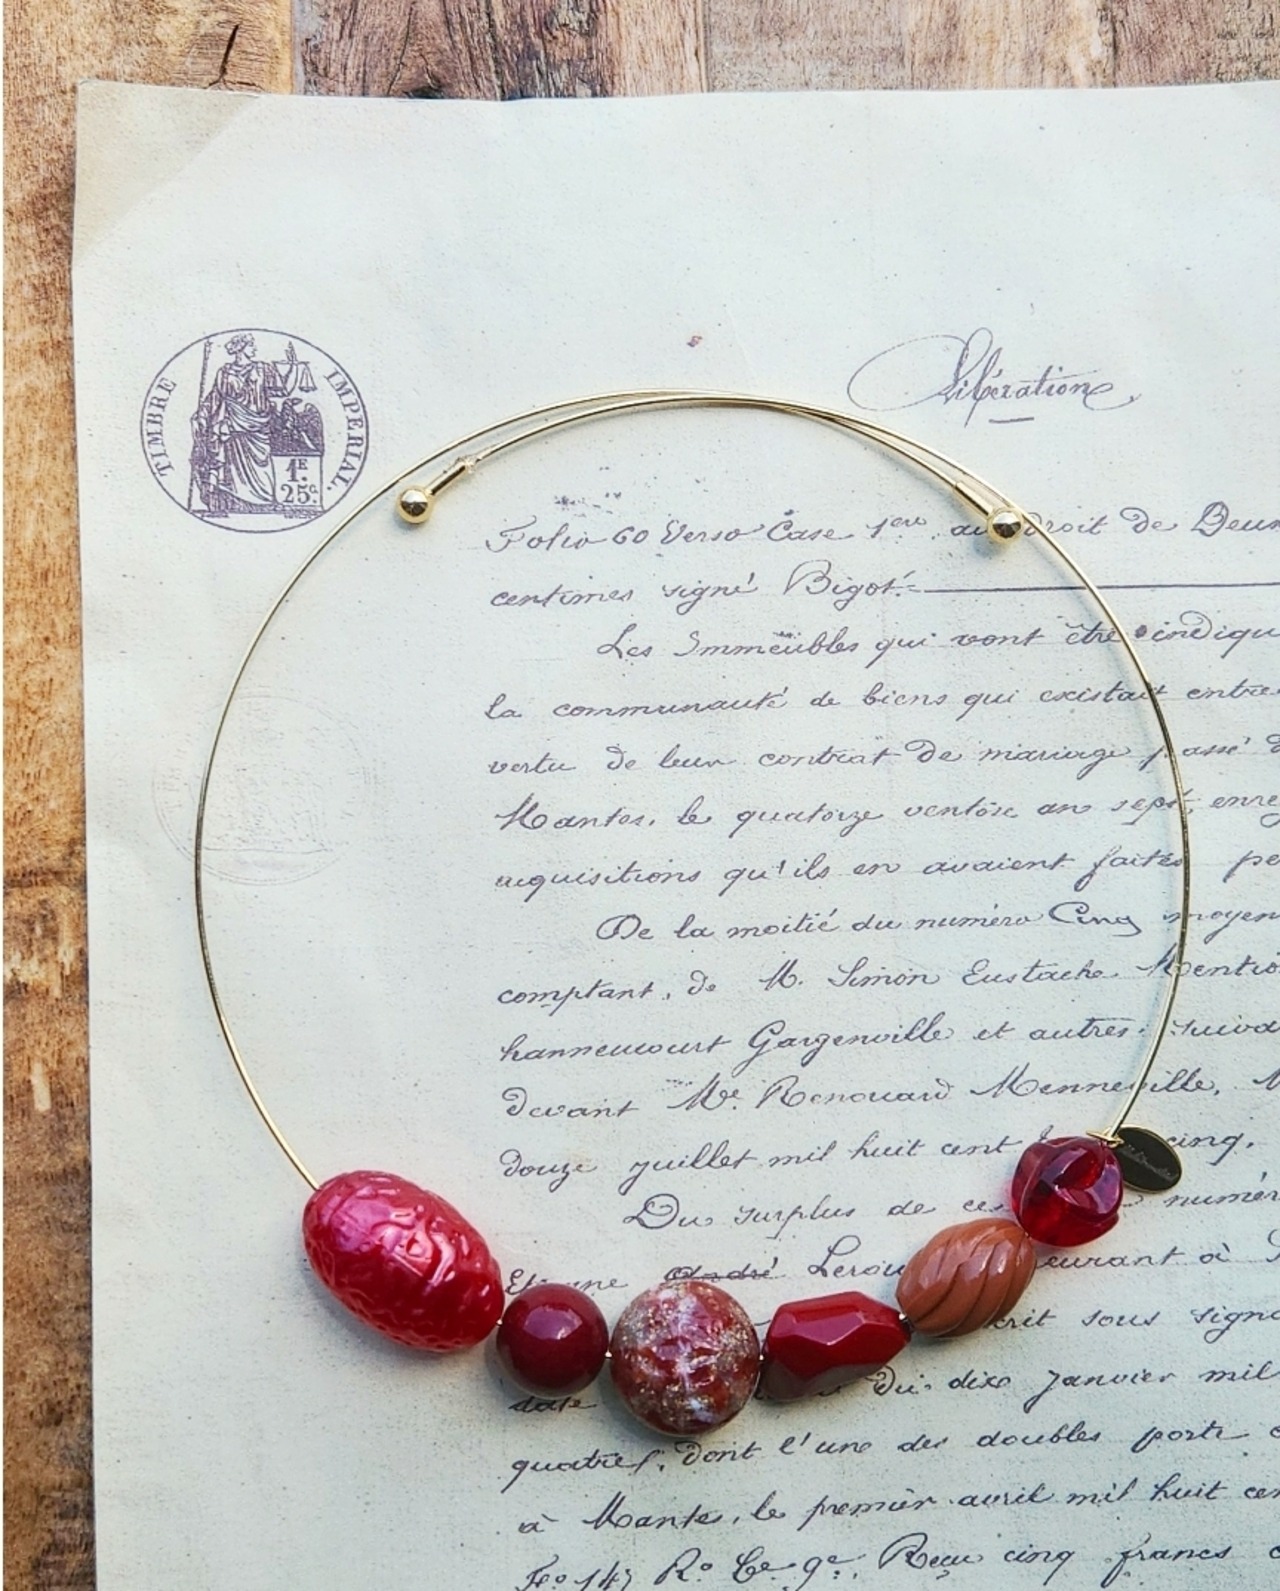 TIMBRE IMPERIAL.
1F.
25c.
Libération
Folio 60 Verso Case 1ere, au droit de Deux
centimes signé Bigot.
Les Immeubles qui vont être indiqu
la communauté de biens qui existait entre
vertu de leur contrat de mariage passé
Mantes, le quatorze ventôse an sept, enre
acquisitions qu'ils en avaient faites pe
De la moitié du numéro Cinq moyen
comptant, de M. Simon Eustache
hanneucourt Gargenville et autres. suiva
devant Me. Renouard Menneville,
douze juillet mil huit cent cinq,
Du surplus de ces numér
Etienne André Lerou eurant à
crit sous signa
date du dix janvier mil
quatre, dont l'un des doubles porte
à Mante, le premier avril mil huit cen
Fo. 147 Ro. Ce. 9e. Reçu cinq francs